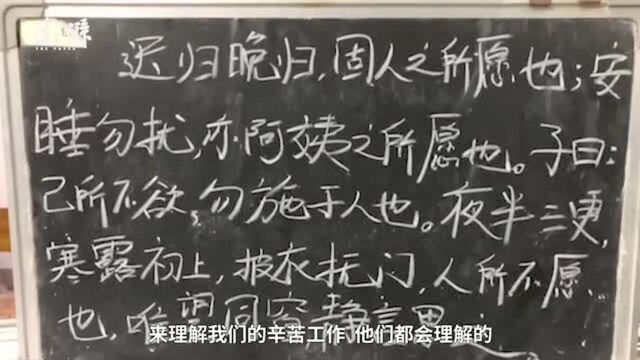 THE PAPER
迟归晚归,固人之所愿也;安
睡勿扰,亦阿姨之所愿也。子曰:
己所不欲,勿施于人也。夜半三更,
寒露初上,披衣抚门,人所不愿
也,唯望同窗静言思
来理解我们的辛苦工作 他们都会理解的